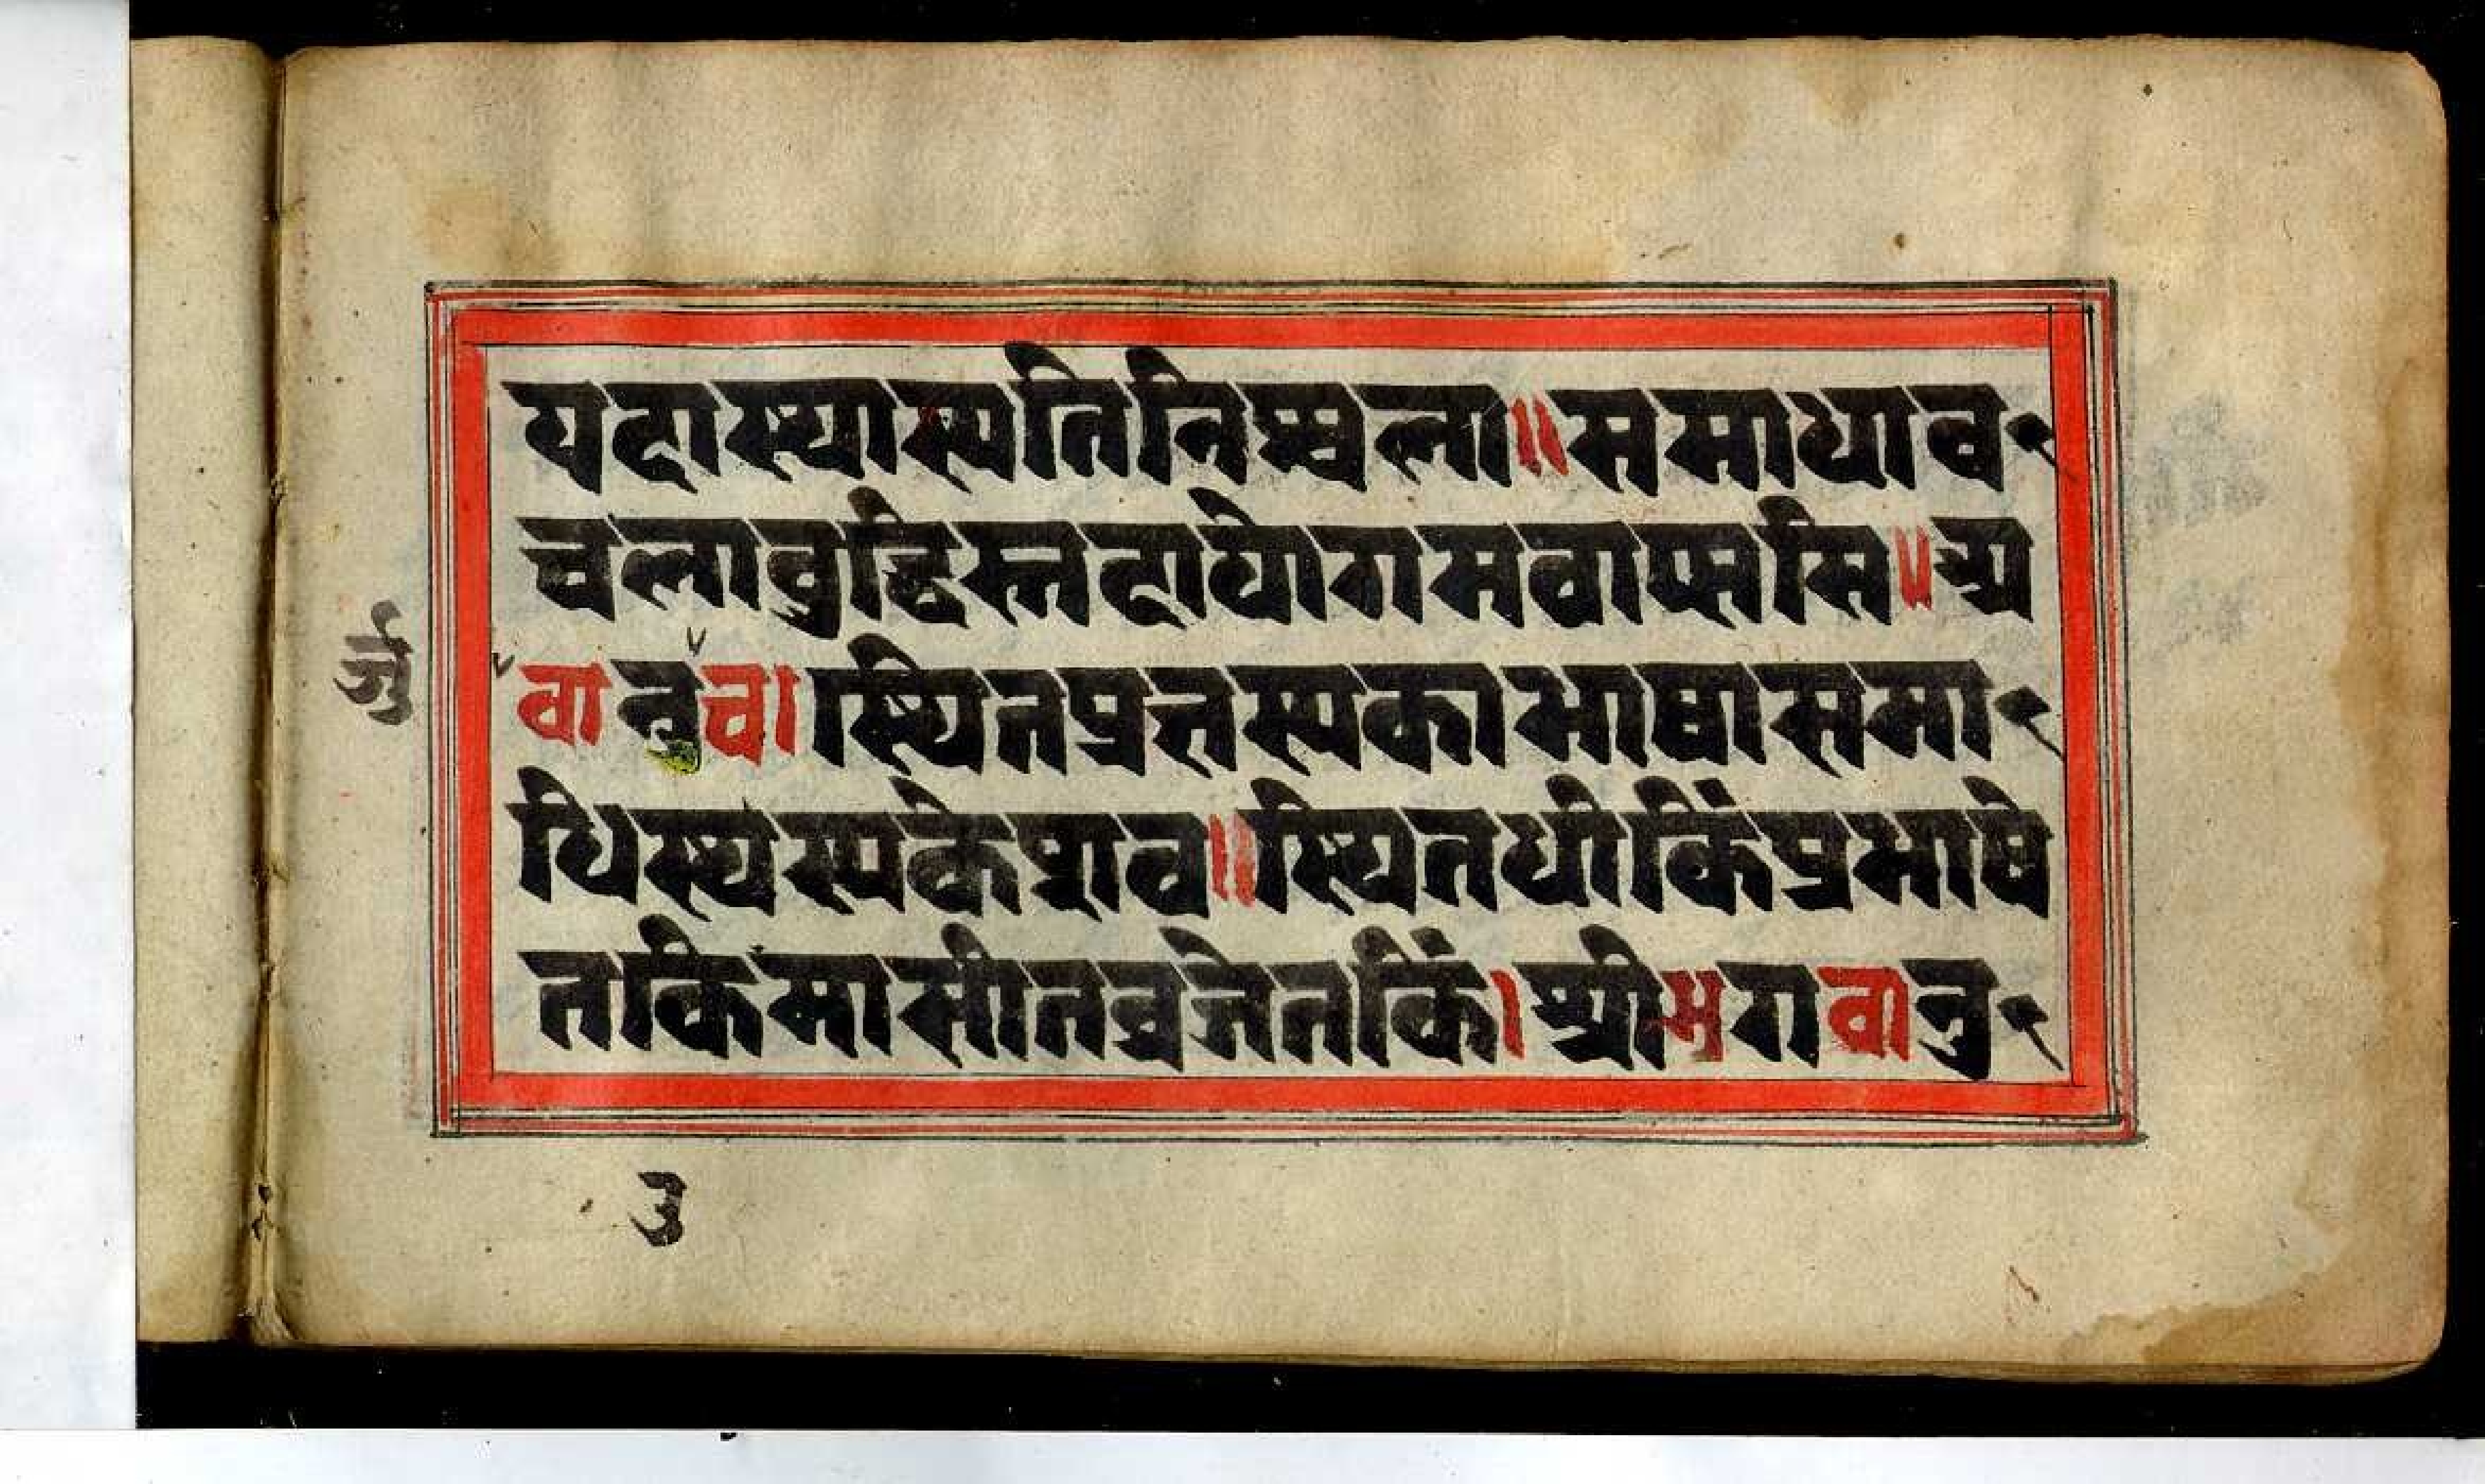 यदास्थास्यतिनिश्चला॥समाधाव-
चलाबुद्धिस्तदायोगमवाप्स्यसि॥अ
र्जु
वानुवा।स्थितप्रज्ञस्यकाभाषासमा-
धिस्थस्यकेशव॥स्थितधीकिंप्रभाषे
तकिमासीतव्रजेतकिं।श्रीभगवानु-
३